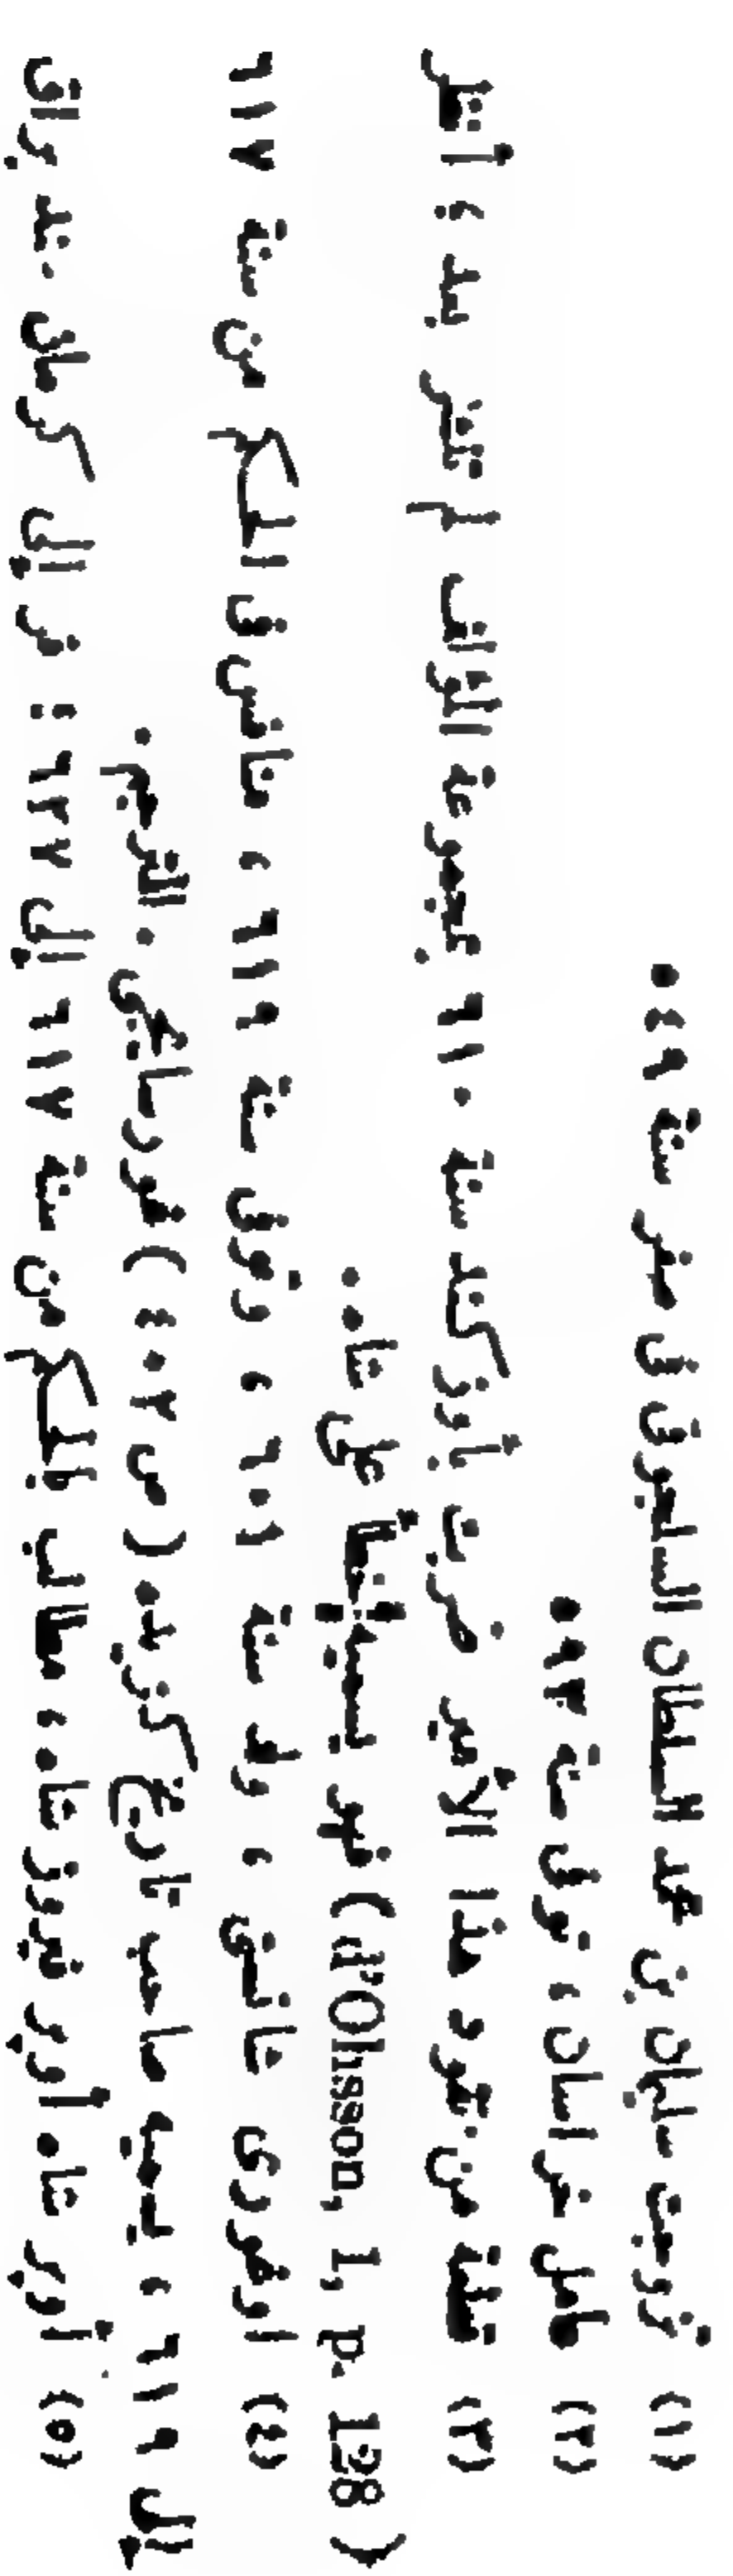 (١) تزوجت سليمان بن محمد السلطان السلجوقى فى صفر سنة ٥٤٩
(٢) عامل خراسان ، توفى سنة ٥٩٣
(٣) قطعة من نقود هذا الأمير ضربت بأوزكند سنة ٦١٠ بمجموعة المؤلف لم تنشر بعد ؛ أنظر
(d'Ohsson, I, p. 128) فهو يسميه خطأ على شاه .
(٤) اوغورى شانسى ، ولد سنة ٦٠١ ، وتوفى سنة ٦١٩ ، منافس فى الحكم من سنة ٦١٧
إلى ٦١٩ ، يسميه صاحب تاريخ كزيده ( ص ٤٠٢ ) غورسايجى . المترجم .
(٥) أوپر شاه أوپر فيروز شاه ، مطالب بالحكم من سنة ٦١٧ إلى ٦٢٧ : فر إلى كرمان عند براق